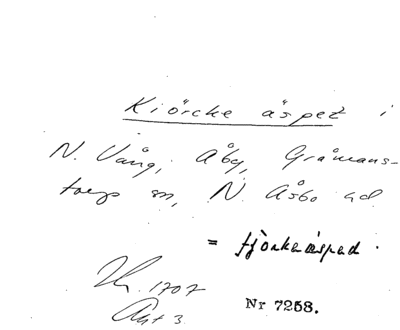 Kiörcke äspet i
N. Vång, Åby, Gråmans-
torps sn, N. Åsbo hd
= fjörkeäspad.
1707
Akt 3.
Nr 7258.